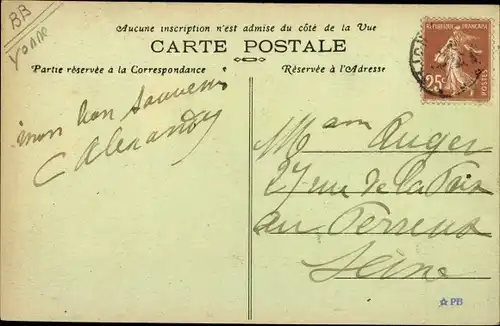 BB
YONNE
Aucune inscription n'est admise du côté de la Vue
CARTE POSTALE
Partie réservée à la Correspondance
Réservée à l'Adresse
REPUBLIQUE FRANÇAISE
25c
POSTES
mon bon Souvenir
Mam Auger
27 rue de la Paix
au Perreux
Seine
☆PB